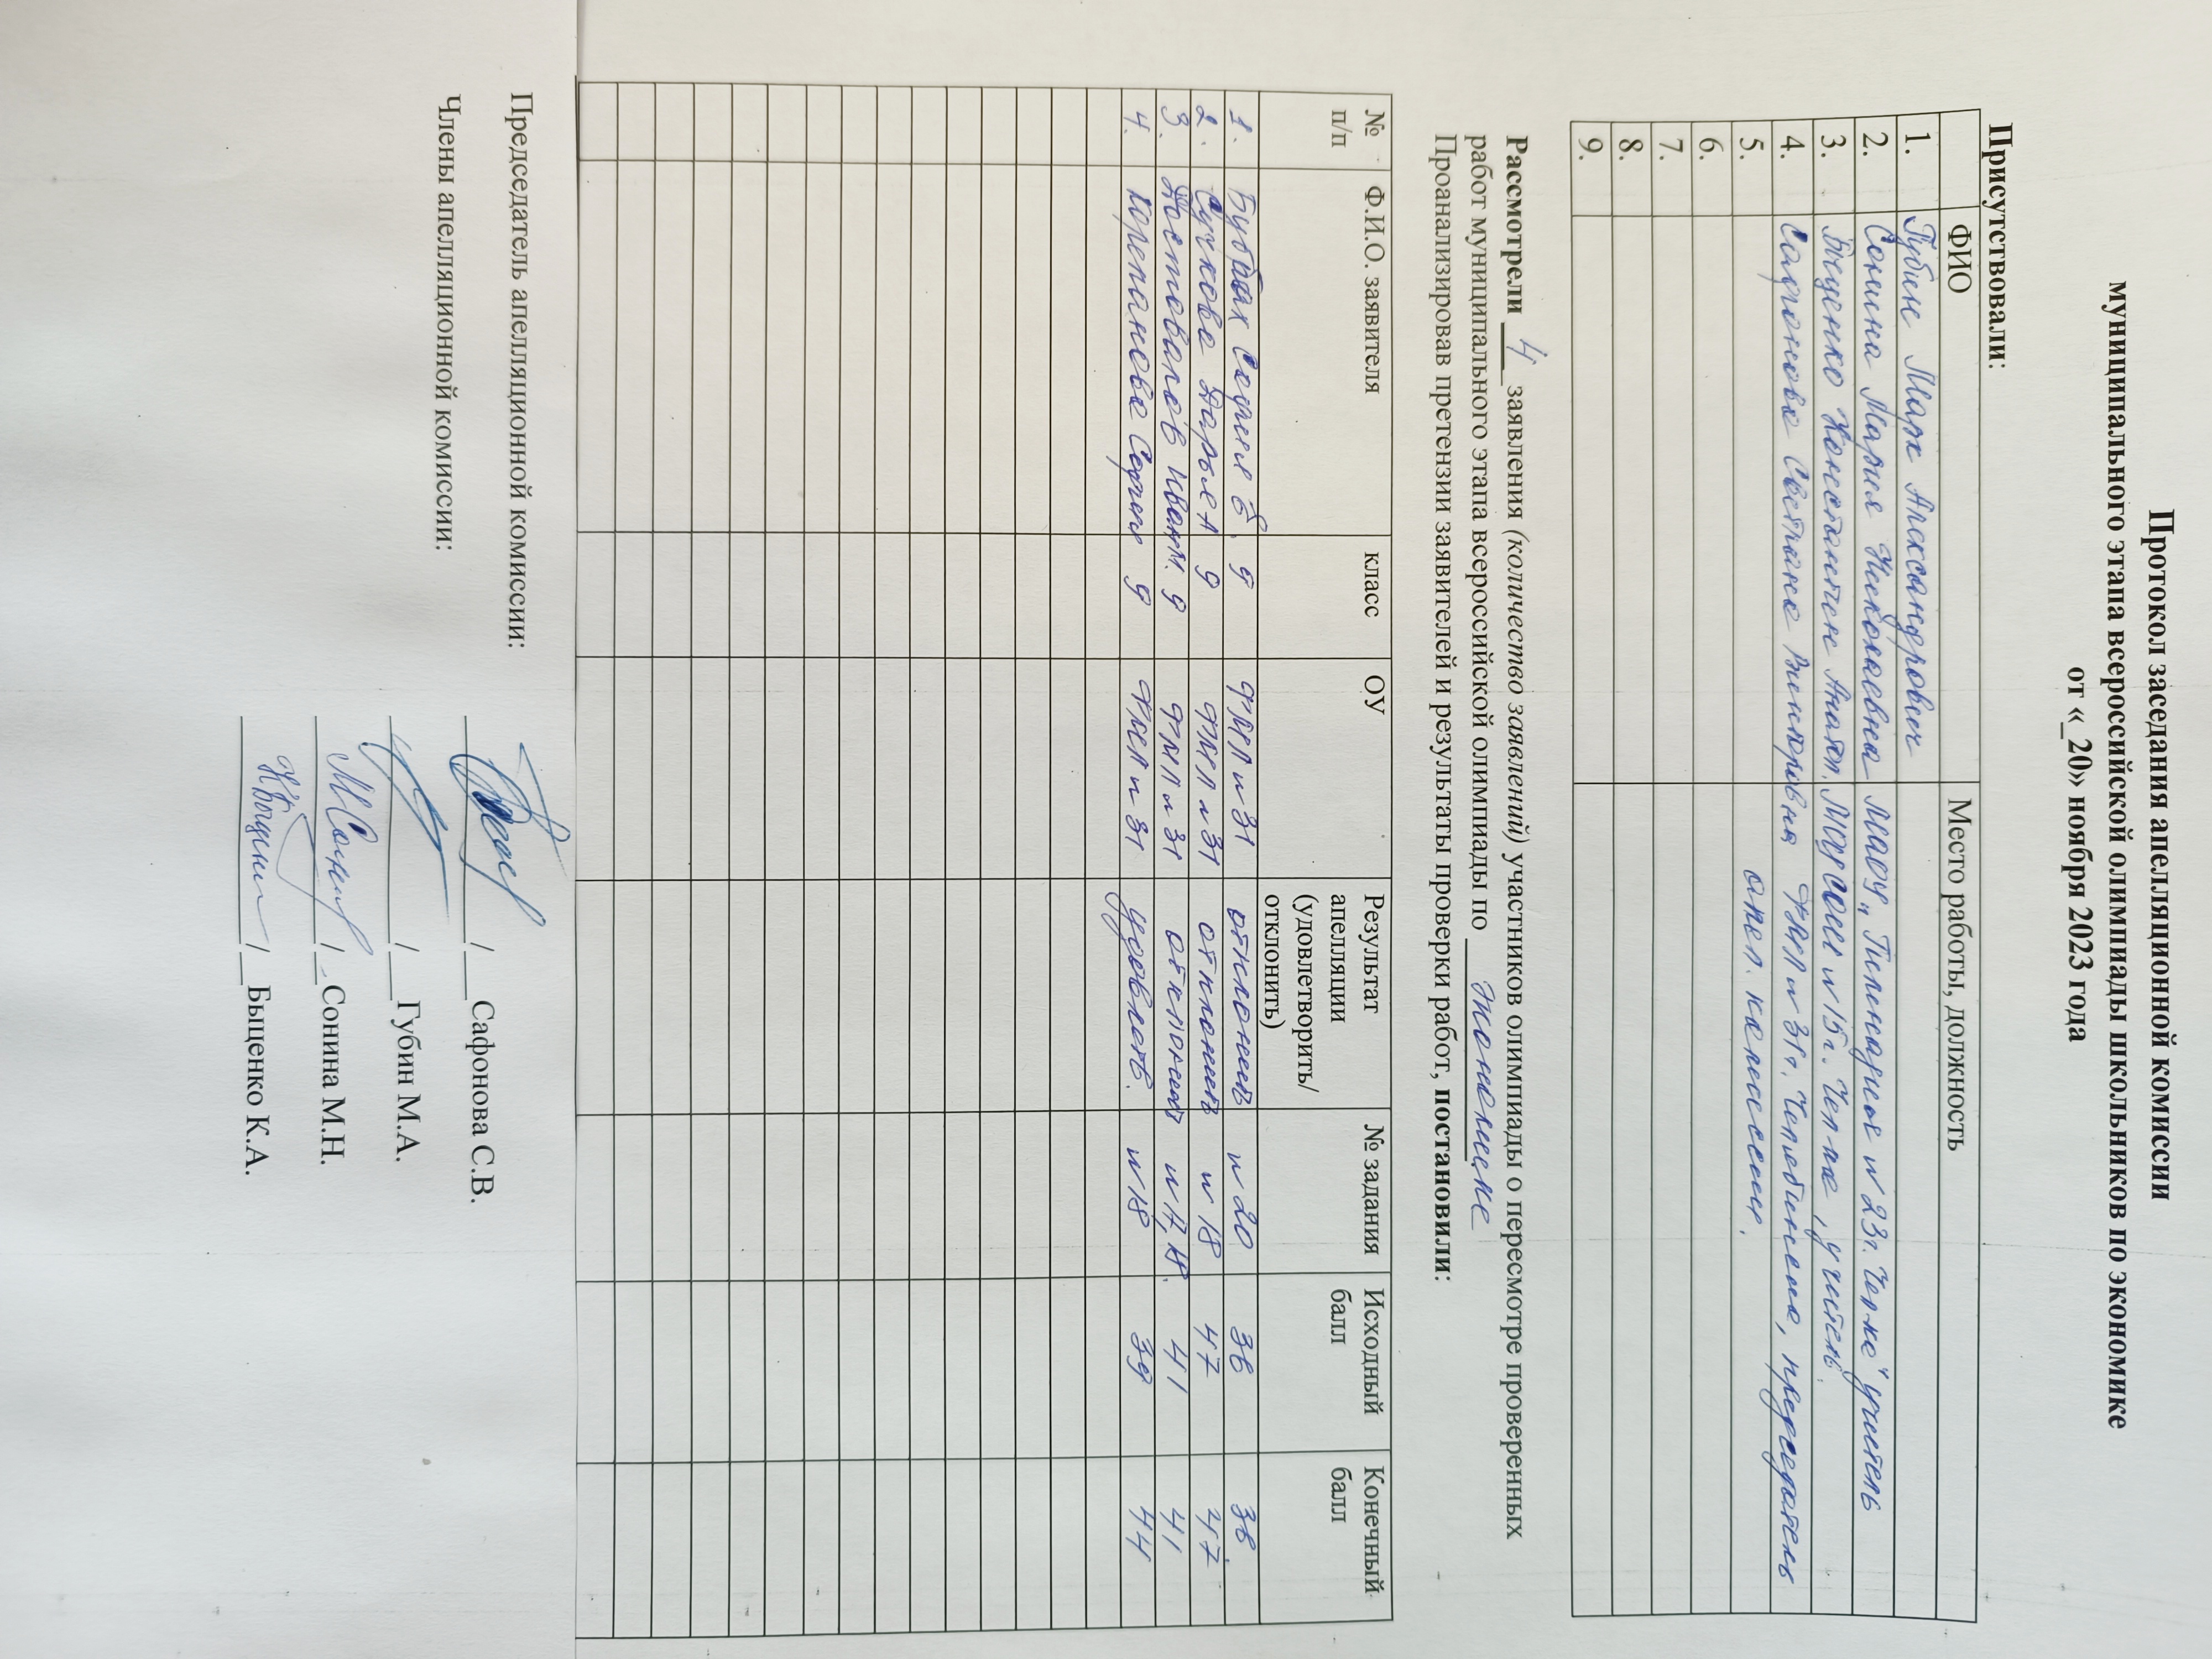 Протокол заседания апелляционной комиссии
муниципального этапа всероссийской олимпиады школьников по экономике
от «_20» ноября 2023 года
Присутствовали:
ФИО Место работы, должность
1. Губин Марк Александрович
2. Сонина Мария Николаевна МАОУ „Гимназия №23г. Чел-ка" учитель
3. Быценко Константин Анатол. МАОУ СОШ №15г. Чел-ка, учитель.
4. Сафонова Светлана Викторовна ФМЛ №31г. Челябинска, председатель
5. апел. комиссии.
6.
7.
8.
9.
Рассмотрели 4 заявления (количество заявлений) участников олимпиады о пересмотре проверенных
работ муниципального этапа всероссийской олимпиады по экономике
Проанализировав претензии заявителей и результаты проверки работ, постановили:
№ п/п Ф.И.О. заявителя класс ОУ Результат апелляции (удовлетворить/ отклонить) № задания Исходный балл Конечный балл
1. София 9 ФМЛ №31 отклонить №20 38 38
2. Сучкова Дарья А 9 ФМЛ №31 отклонить №18 47 47
3. Иван М. 9 ФМЛ №31 отклонить №17,18. 41 41
4. София 9 ФМЛ №31 удовлетв. №18 39 44
Председатель апелляционной комиссии: / Сафонова С.В.
Члены апелляционной комиссии: / Губин М.А.
/ Сонина М.Н.
/ Быценко К.А.